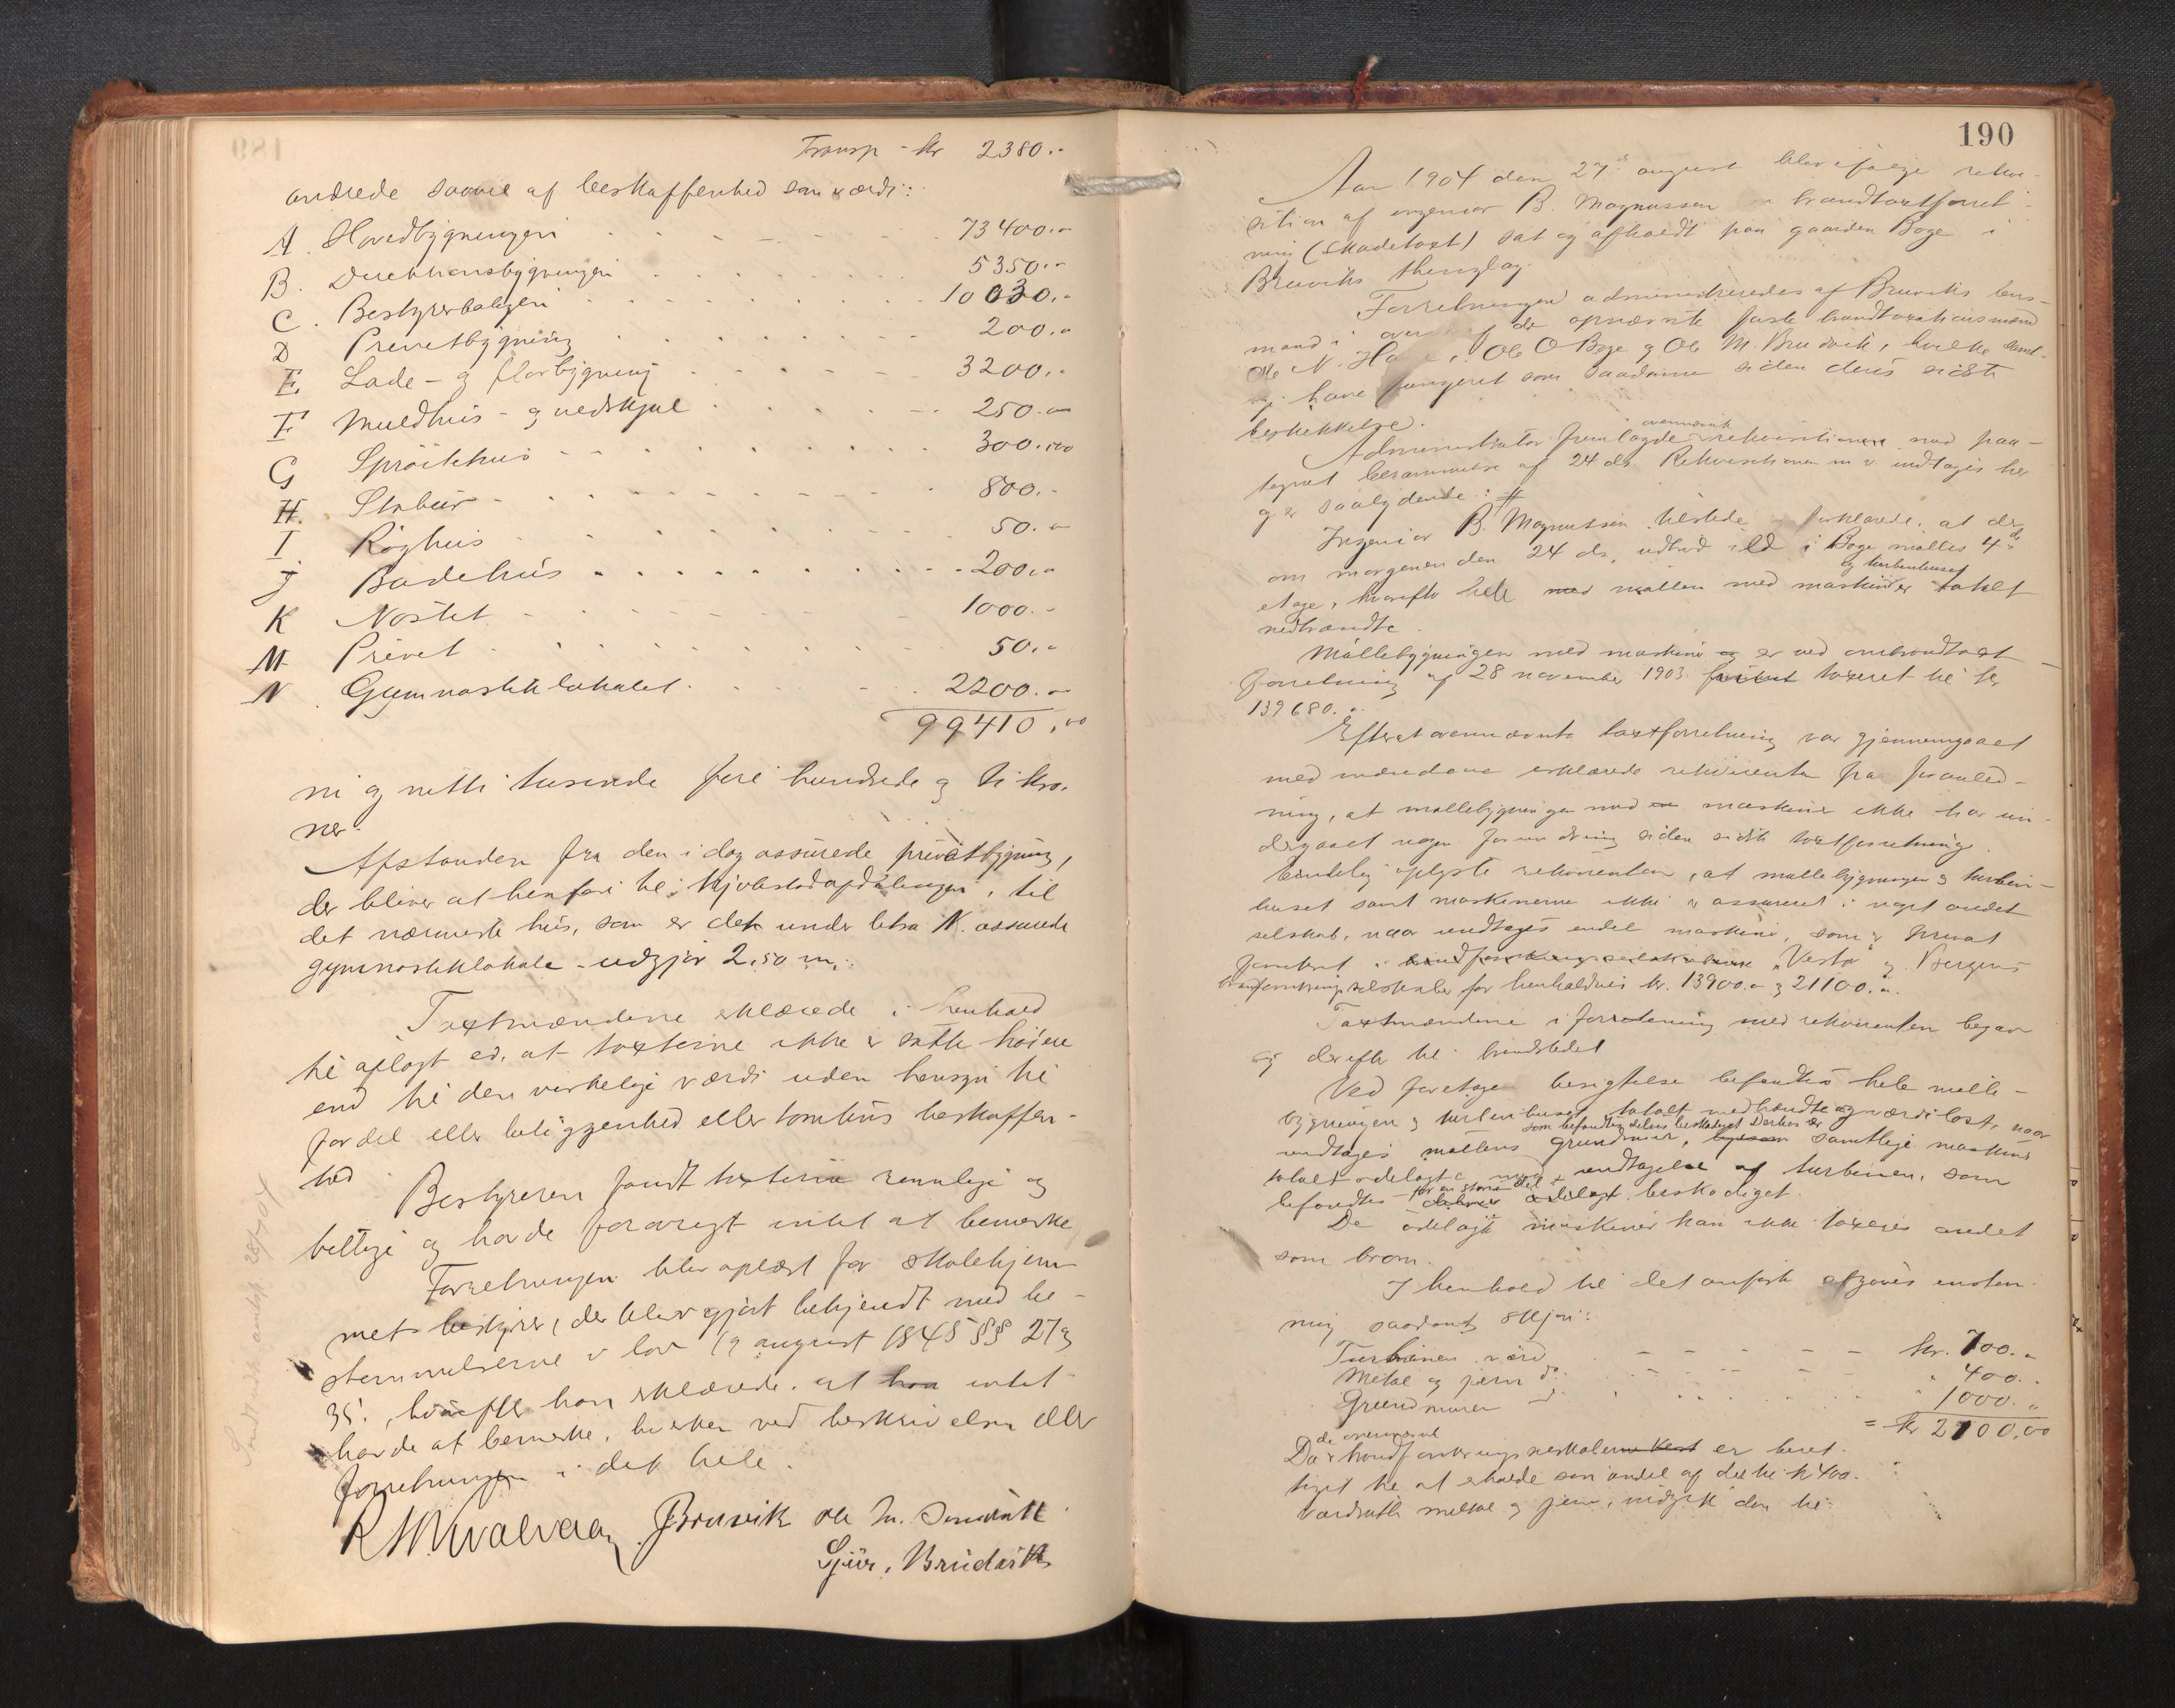 Transp - kr 2380.-
andrede saavel af beskaffenhed som værdi:
A. Hovedbygningen 73400.-
B. Direktionsbygningen 5350.-
C. Bestyrerboligen 10030.-
D Privetbygning 200.-
E. Lade- og flørbygning 3200.-
F Muldhus- og vedskjul 250.-
G Sprøitehus 300.-
H. Stabur 800.-
I Røghus 50.-
J Badehus 200.-
K Nøstet 1000.-
M Privet 50.-
N. Gymnastiklokalet 2200.-
99410.00
ni og nitti tusende fire hundrede og ti kro-
ner.
Afstanden fra den i dag assurede privetbygning,
der bliver at henføre til kjøbstadafdelingen, til
det nærmeste hus, som er det under litra N. assurede
gymnastiklokale - udgjør 2.50 m.
Taxtmændene erklærede i henhold
til aflagt ed, at taxterne ikke er satte høiere
end til den virkelige værdi uden hensyn til
fordel eller beliggenhed eller tomtens beskaffen-
hed
Bestyreren fandt taxterne rimelige og
billige og havde forøvrigt intet at bemerke
Forretningen blev oplæst for skolehjem-
mets bestyrer, der blev gjort bekjendt med be-
stemmelserne i lov 19 august 1845 §§ 27 og
35, hvorefter han erklærede, at han intet
havde at bemerke, hverken ved beskrivelsen eller
forretningen i det hele.
Bruvik Ole M.
Sjur. Brudvik
28/7 04
190
Aar 1904 den 27de august blev ifølge rekvi-
sition af ingeniør B. Magnussen brandtaxtforret-
ning (skadetaxt) sat og afholdt paa gaarden Boge i
Bruviks thinglag.
Forretningen administreredes af Bruviks lens-
mand i de opnævnte faste brandtaxationsmænd
Ole N. Ole O Boge og Ole M. Brudvik, hvilke samt-
lige have fungeret som saadanne siden deres sidste
beskikkelse.
ovennævnte
Administrator fremlagde rekvisitionen med paa-
tegnet berammelse af 24 ds. Rekvisitionen m v. indtages her
og er saalydende: #
Ingeniør B. Magnussen tilstede forklarede, at der
om morgenen den 24 ds. udbrød ild i Boge mølles 4de
og turbinhuset
etage, hvorefter hele møllen med maskiner totalt
nedbrændte.
Møllebygningen med maskiner er ved ombrandtaxt-
forretning af 28 november 1903 taxeret til kr
139680.-
Efterat ovennævnte taxtforretning var gjennemgaaet
med mændene erklærede rekvirenten fra foranled-
ning, at møllebygningen med maskiner ikke har un-
dergaaet nogen forandring siden sidste taxtforretning.
Endelig oplyste rekvirenten, at møllebygningen og turbin-
huset samt maskinerne ikke er assureret i noget andet
selskab, naar undtages endel maskiner, som er privat
forsikret i "Vesta" og Bergens
brandforsikringsselskaber for henholdsvis kr. 13900.- og 21100.-
Taxtmændene i forening med rekvirenten begav
sig derefter til brandstedet
Ved foretagen besigtelse befandtes hele mølle-
bygningen og turbinhuset totalt nedbrændte og værdiløst, naar
som befandtes delvis beskadiget Derhos er
undtages møllens grundmur, samtlige maskiner
totalt ødelagte med undtagelse af turbinen, som
for en større del
befandtes beskadiget.
De ødelagte maskiner kan ikke taxeres andet
som brom.
I henhold til det anførte afgaves enstem-
mig saadant skjøn:
Turbinens værdi kr. 700.-
Metal og jern do. " 400.-
Grundmuren do. " 1000.-
= Kr 2100.00
de ovennævnte
Da brandforsikringsselskaberne er beret-
tiget til at erholde sin andel af det til kr 400.
værdsatte metal og jern, indgik den til: